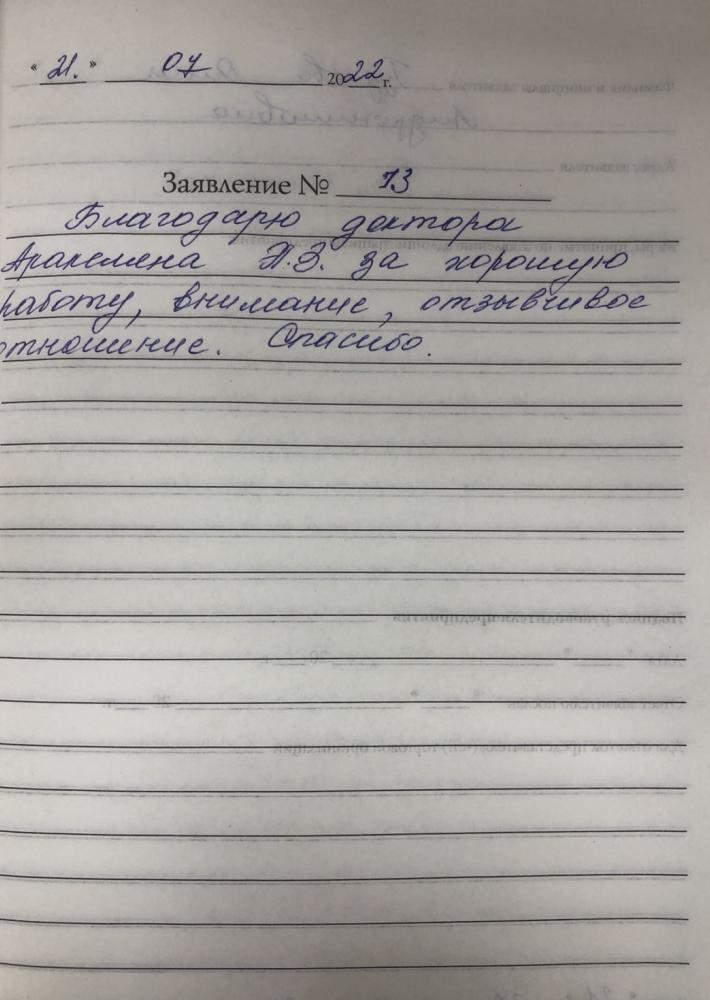 "21." 07 2022 г.
Заявление № 73
Благодарю доктора
Аракеляна А.З. за хорошую
работу, внимание, отзывчивое
отношение. Спасибо.